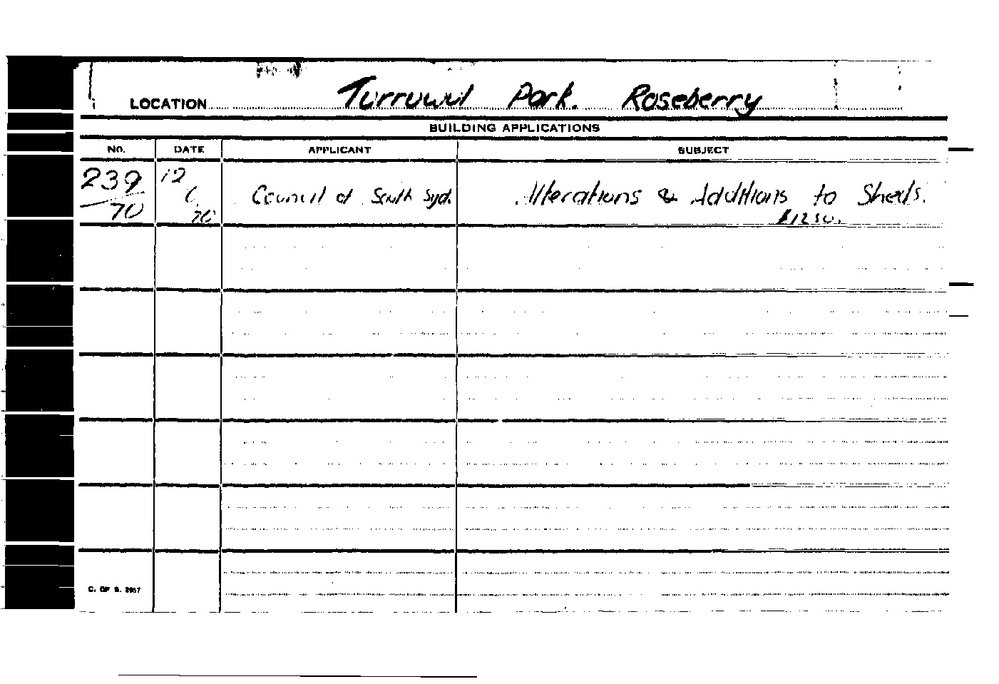 LOCATION Turruwul Park. Roseberry
BUILDING APPLICATIONS
No. DATE APPLICANT SUBJECT
239 12 Council of South Syd. Alterations & Additions to Sheds.
70 6 70 $1250.
C. OF S. 2957